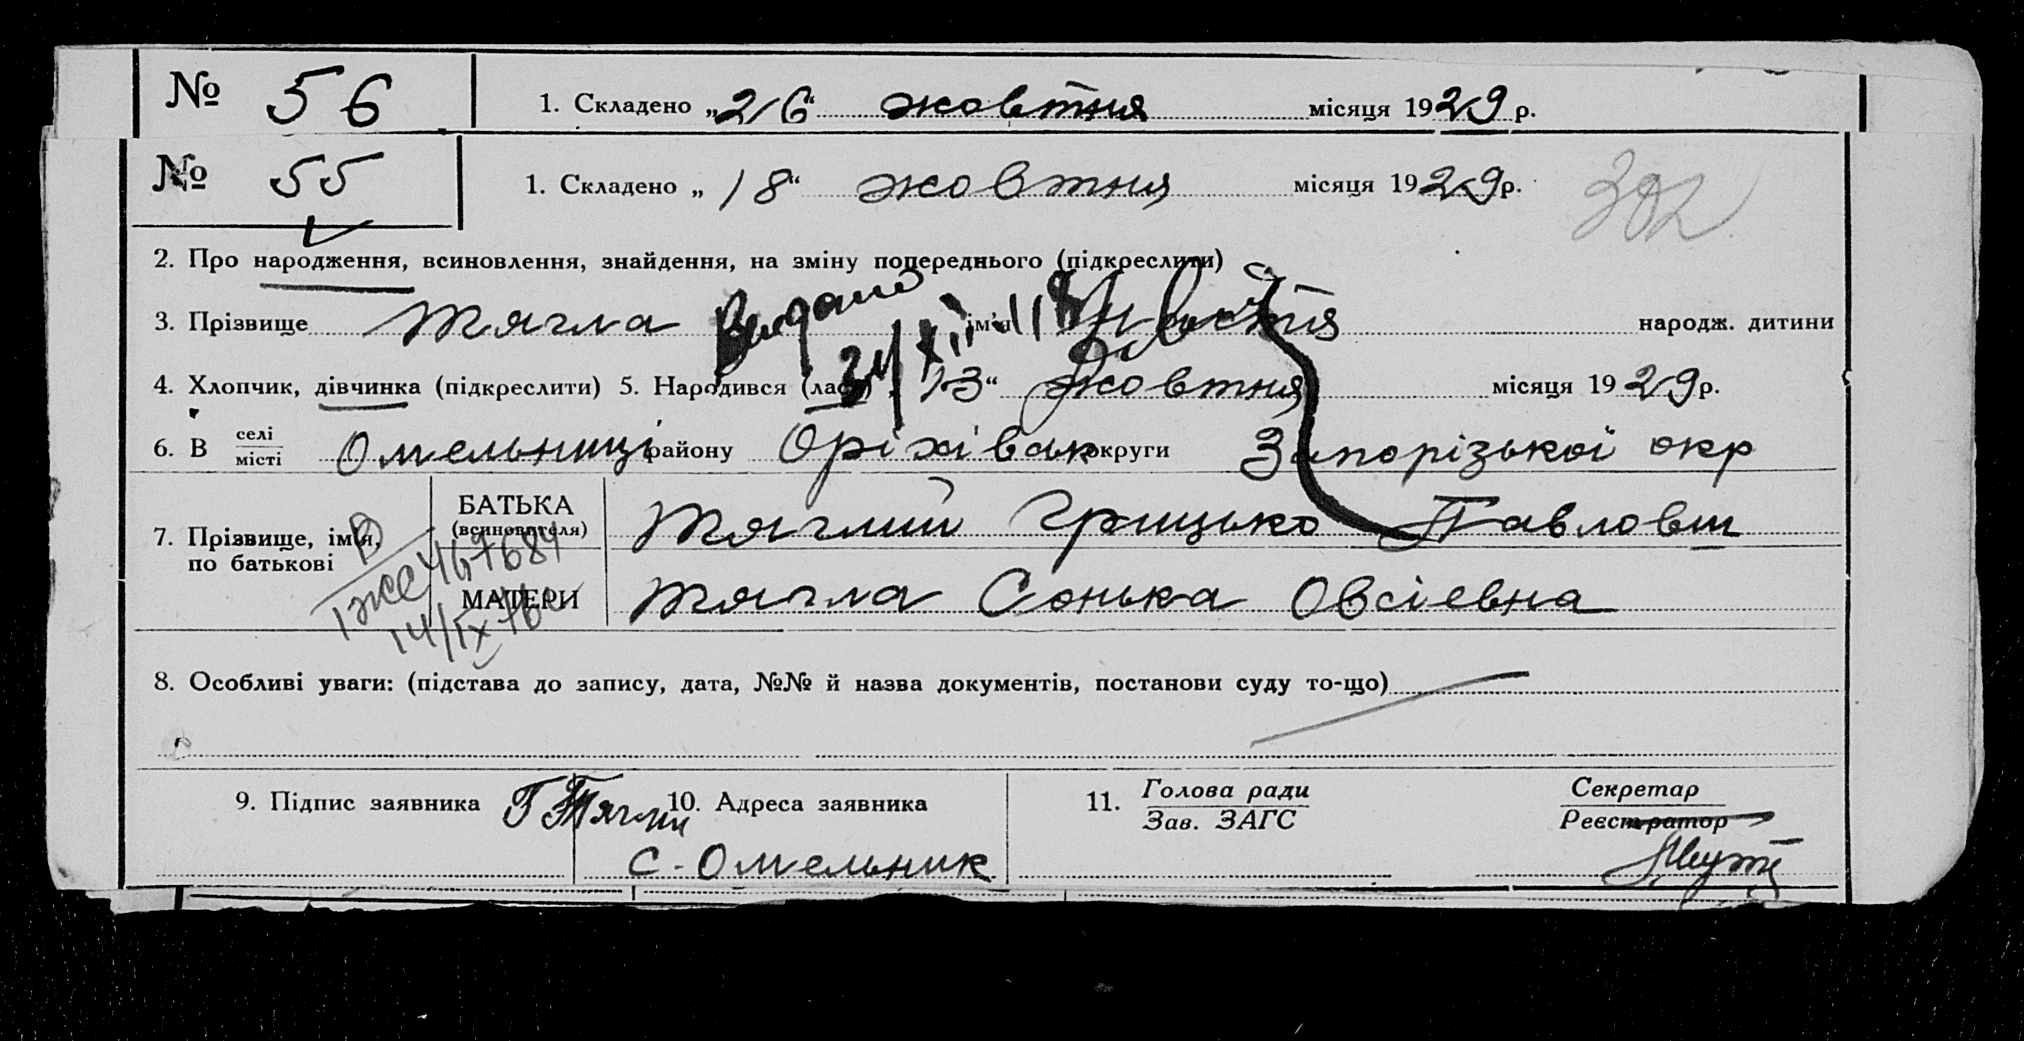 № 56 1. Складено „26“ жовтня місяця 1929 р.
№ 55 1. Складено „18“ жовтня місяця 1929 р.
302
2. Про народження, всиновлення, знайдення, на зміну попереднього (підкреслити)
3. Прізвище Тягла ім'я народж. дитини
Видано
4. Хлопчик, дівчинка (підкреслити) 5. Народився (лась) „13“ жовтня місяця 1929 р.
6. В селі місті Омельниці району Оріхівськ округи Запорізької окр
7. Прізвище, ім'я, по батькові
БАТЬКА (всиновителя) Тяглий Грицько Павлович
МАТЕРИ Тягла Сонька Овсіевна
ІЖС 467684
14/IX
8. Особливі уваги: (підстава до запису, дата, №№ й назва документів, постанови суду то-що)
9. Підпис заявника Г Тяглий 10. Адреса заявника 11. Голова ради Секретар
Зав. ЗАГС Реєстратор
с-Омельник